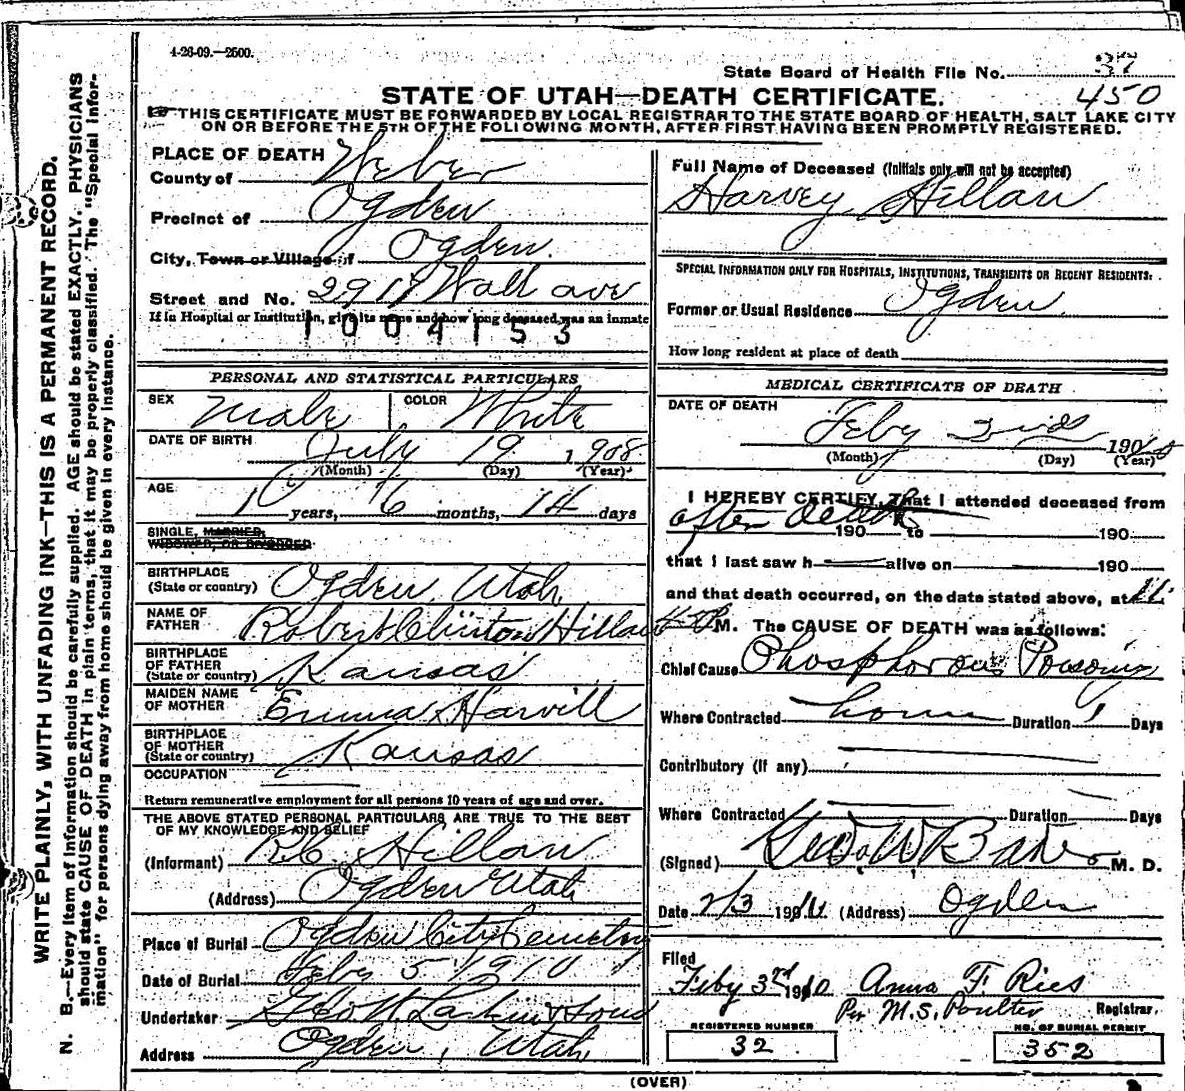 4-26-09.—2500.
State Board of Health File No. 37
STATE OF UTAH—DEATH CERTIFICATE. 450
THIS CERTIFICATE MUST BE FORWARDED BY LOCAL REGISTRAR TO THE STATE BOARD OF HEALTH, SALT LAKE CITY
ON OR BEFORE THE 5TH OF THE FOLLOWING MONTH, AFTER FIRST HAVING BEEN PROMPTLY REGISTERED.
WRITE PLAINLY, WITH UNFADING INK—THIS IS A PERMANENT RECORD.
N. B.—Every item of information should be carefully supplied. AGE should be stated EXACTLY. PHYSICIANS
should state CAUSE OF DEATH in plain terms, that it may be properly classified. The "Special Infor-
mation" for persons dying away from home should be given in every instance.
PLACE OF DEATH
County of Weber
Precinct of Ogden
City, Town or Village of Ogden
Street and No. 2917 Wall ave
If in Hospital or Institution, give its name and how long deceased was an inmate
1004153
PERSONAL AND STATISTICAL PARTICULARS
SEX Male COLOR White
DATE OF BIRTH July 19 1908
(Month) (Day) (Year)
AGE 1 years, 6 months, 14 days
SINGLE, MARRIED,
WIDOWED, OR DIVORCED
BIRTHPLACE
(State or country) Ogden, Utah
NAME OF
FATHER Robert Clinton Hillan
BIRTHPLACE
OF FATHER
(State or country) Kansas
MAIDEN NAME
OF MOTHER Emma Harvill
BIRTHPLACE
OF MOTHER
(State or country) Kansas
OCCUPATION
Return remunerative employment for all persons 10 years of age and over.
THE ABOVE STATED PERSONAL PARTICULARS ARE TRUE TO THE BEST
OF MY KNOWLEDGE AND BELIEF
(Informant) R.C. Hillan
(Address) Ogden Utah
Place of Burial Ogden City Cemetery
Date of Burial Feby 5 1910
Undertaker Geo W. Larkin & Sons
Address Ogden, Utah
Full Name of Deceased (Initials only will not be accepted)
Harvey Hillan
SPECIAL INFORMATION ONLY FOR HOSPITALS, INSTITUTIONS, TRANSIENTS OR RECENT RESIDENTS.
Former or Usual Residence Ogden
How long resident at place of death
MEDICAL CERTIFICATE OF DEATH
DATE OF DEATH
Feby 190
(Month) (Day) (Year)
I HEREBY CERTIFY, That I attended deceased from
after death 190 to 190
that I last saw h alive on 190
and that death occurred, on the date stated above, at 11
M. The CAUSE OF DEATH was as follows:
Chief Cause Phosphorous Poisoning
Where Contracted home Duration 1 Days
Contributory (if any)
Where Contracted Duration Days
(Signed) M. D.
Date 2/3 19 (Address) Ogden
Filed
Feby 3rd 1910 Anna F Ries
Per M.S. Poulter Registrar.
REGISTERED NUMBER NO. OF BURIAL PERMIT
32 352
(OVER)